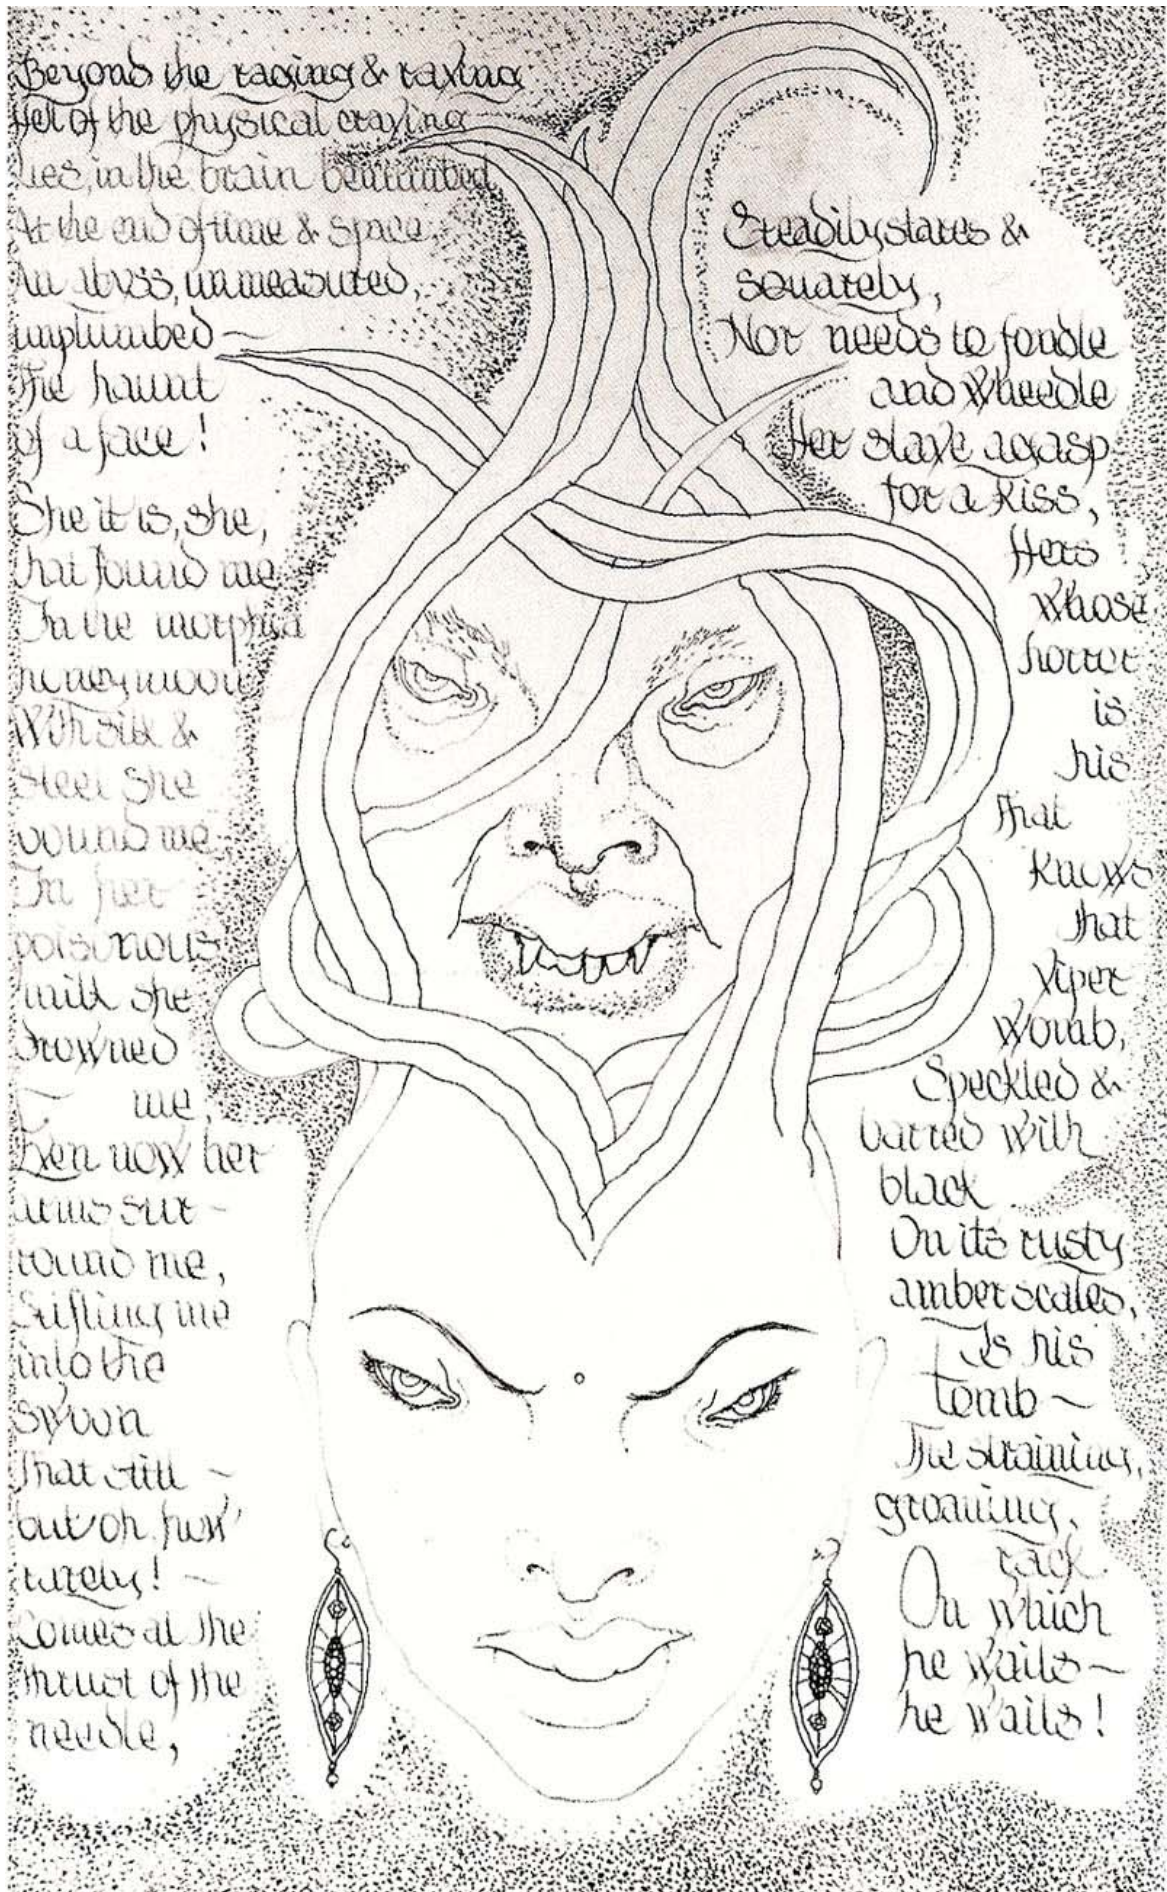 Beyond the raging & raving
Hel of the physical craving
Lies, in the brain benumbed
At the end of time & space,
An abyss, unmeasured,
unplumbed ~
The haunt
of a face!
She it is, she,
that found me
In the morphia
honeymoon
With silk &
steel she
bound me,
In her
poisonous
milk she
drowned
me,
Even now her
arms sur-
round me,
Stifling me
into the
swoon
That still ~
but oh, how
rarely! ~
Comes at the
thrust of the
needle,
Steadily stares &
squarely,
Nor needs to fondle
and wheedle
Her slave agasp
for a kiss,
Hers
whose
horror
is
his
that
knows
that
viper
womb,
Speckled &
barred with
black
On its rusty
amber scales,
Is his
tomb ~
The straining,
groaning,
rack
On which
he wails ~
he wails!